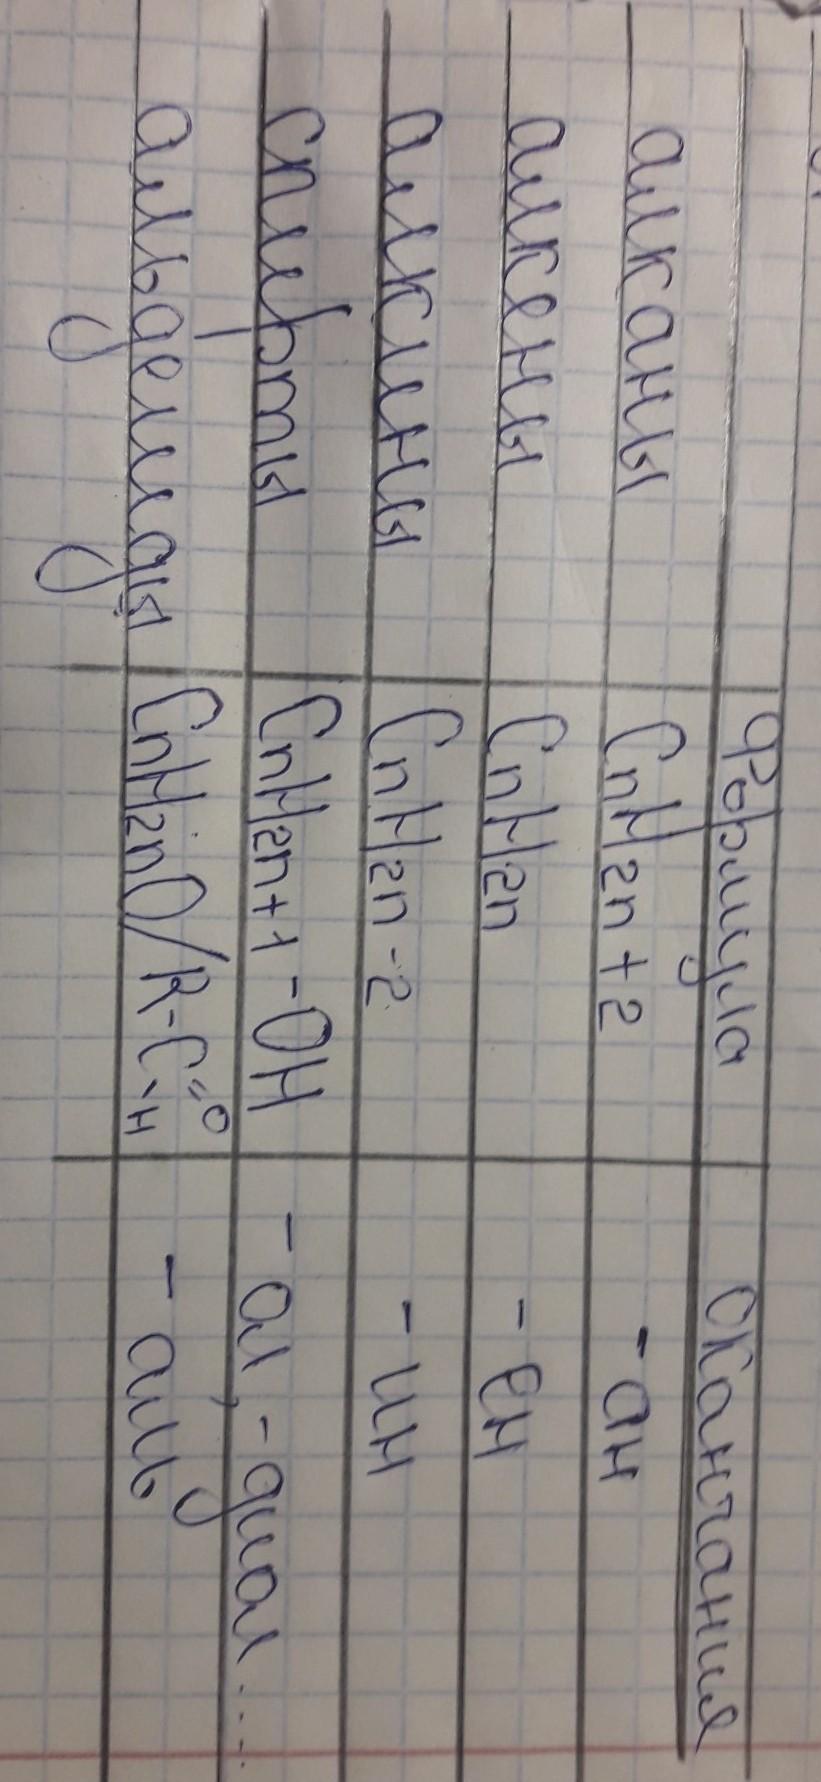 формула оканчание
алканы CnH2n+2 -ан
алкены CnH2n -ен
алкины CnH2n-2 -ин
спирты CnH2n+1-OH -ол, -диол....
альдегиды CnH2nO/R-C=O-H -аль